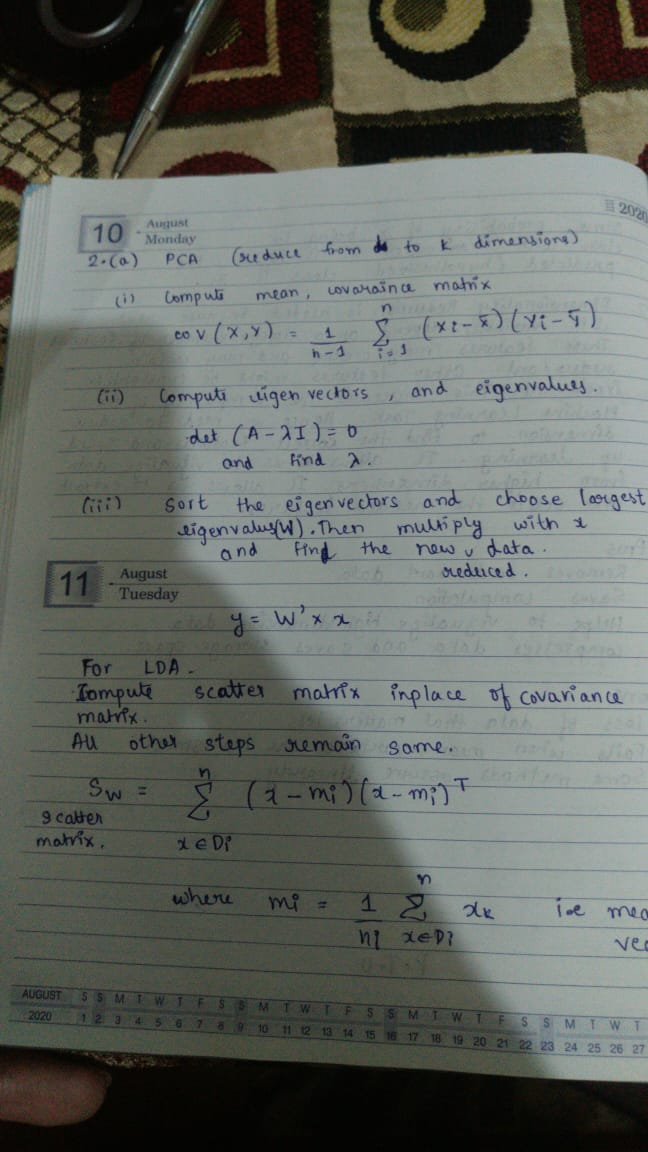 2020
10 August
Monday
2.(a) PCA (reduce from to k dimensions)
(i) Compute mean, covaraince matrix
cov(x,y) = 1/n-1 n Σ i=1 (xi-x̄)(yi-ȳ)
(ii) Compute eigen vectors, and eigenvalues.
det (A-λI)=0
and find λ.
(iii) Sort the eigenvectors and choose largest
eigenvalus(W). Then multiply with x
and find the new data.
reduced.
11 August
Tuesday
y = W' x x
For LDA-
Compute scatter matrix inplace of covariance
matrix.
All other steps remain same.
Sw = n Σ x∈Di (x-mi)(x-mi)T
scatter
matrix.
where mi = 1/ni n Σ x∈Di xk i.e mea
vec
AUGUST S S M T W T F S S M T W T F S S M T W T F S S M T W T
2020 1 2 3 4 5 6 7 8 9 10 11 12 13 14 15 16 17 18 19 20 21 22 23 24 25 26 27